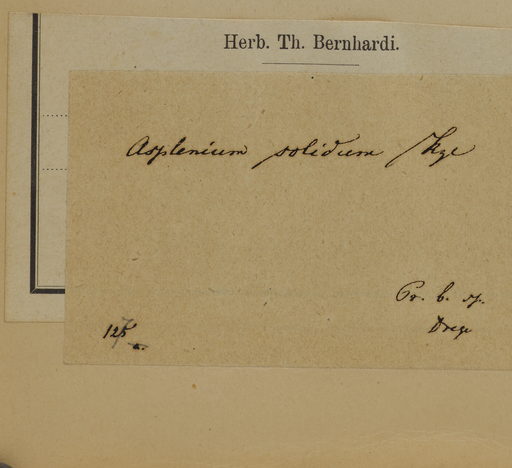 Herb. Th. Bernhardi.
Asplenium solidum Kze
Pr. b. sp.
Drege
125
a.